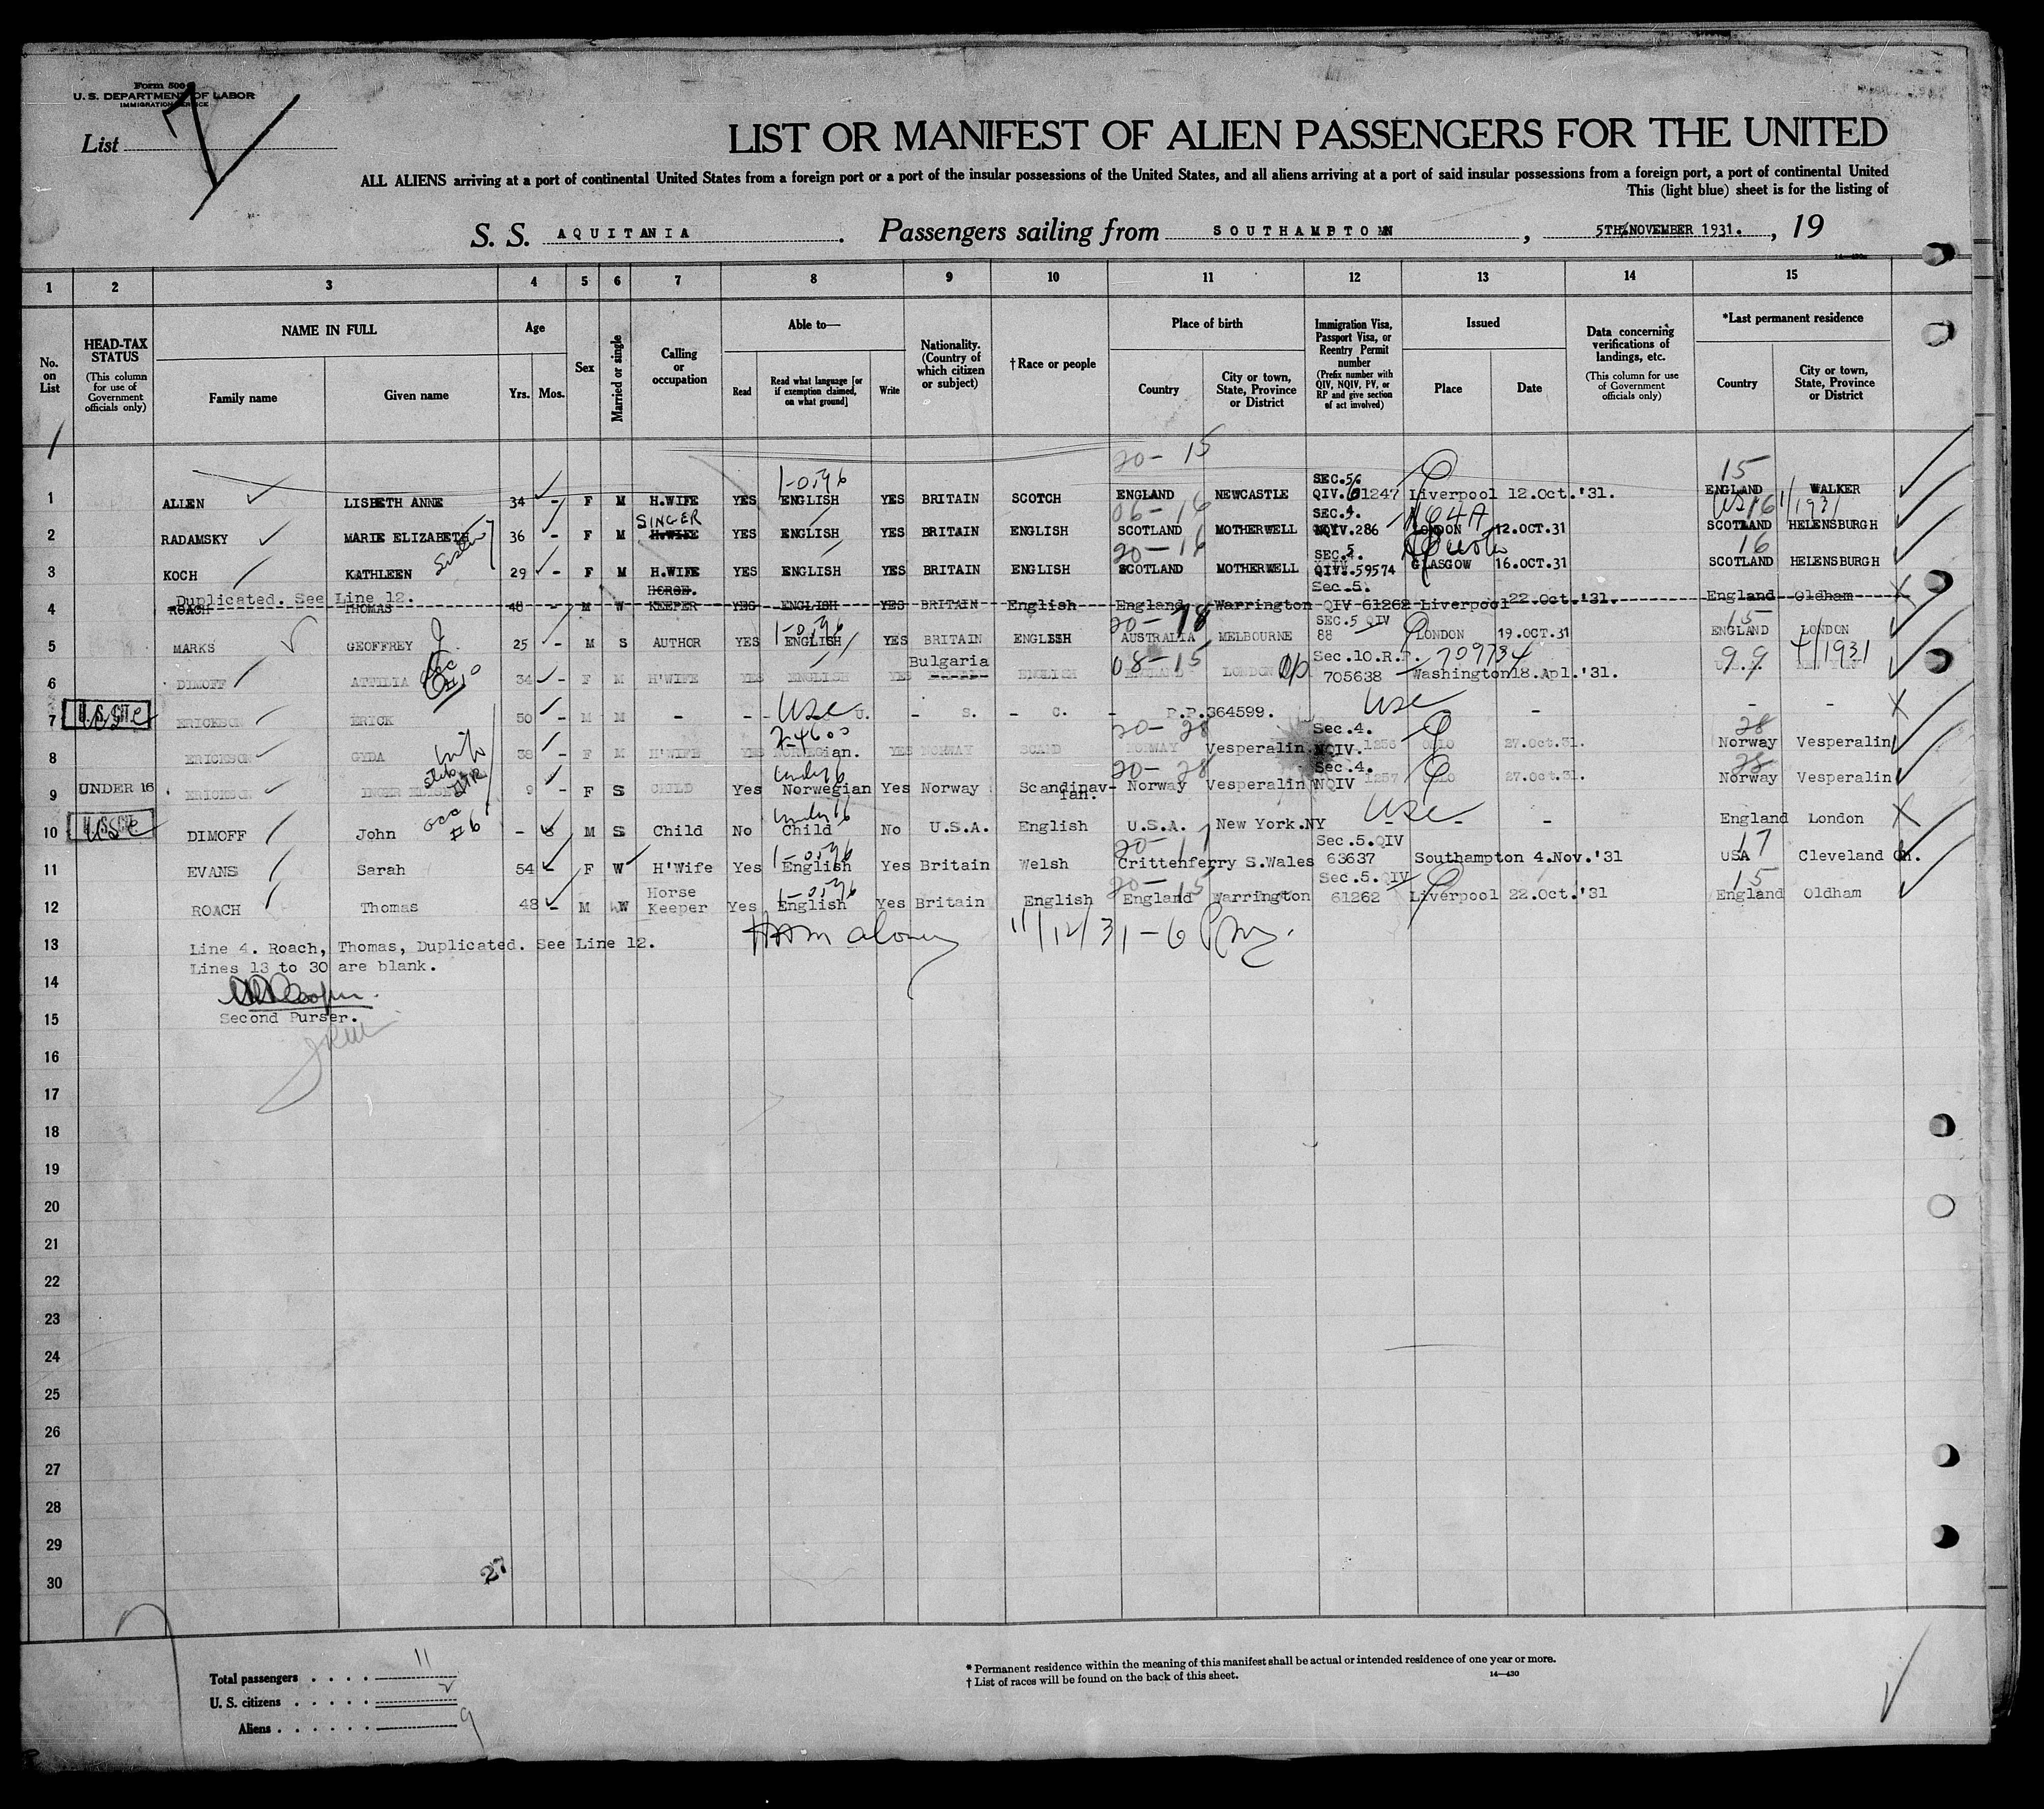 Form 500
U. S. DEPARTMENT OF LABOR
IMMIGRATION SERVICE
List
LIST OR MANIFEST OF ALIEN PASSENGERS FOR THE UNITED
ALL ALIENS arriving at a port of continental United States from a foreign port or a port of the insular possessions of the United States, and all aliens arriving at a port of said insular possessions from a foreign port, a port of continental United
This (light blue) sheet is for the listing of
S. S. AQUITANIA. Passengers sailing from SOUTHAMPTON, 5TH NOVEMBER 1931., 19
14—430
1 2 3 4 5 6 7 8 9 10 11 12 13 14 15
No. on List
HEAD-TAX STATUS (This column for use of Government officials only)
NAME IN FULL Family name Given name
Age Yrs. Mos.
Sex
Married or single
Calling or occupation
Able to— Read Read what language [or if exemption claimed, on what ground] Write
Nationality. (Country of which citizen or subject)
†Race or people
Place of birth Country City or town, State, Province or District
Immigration Visa, Passport Visa, or Reentry Permit number (Prefix number with QIV, NQIV, PV, or RP and give section of act involved)
Issued Place Date
Data concerning verifications of landings, etc. (This column for use of Government officials only)
*Last permanent residence Country City or town, State, Province or District
20- 15 15
1 ALLEN LISBETH ANNE 34 - F M H.WIFE YES ENGLISH YES BRITAIN SCOTCH ENGLAND NEWCASTLE SEC.5. QIV.61247 Liverpool 12.Oct.'31. ENGLAND WALKER
06-16
2 RADAMSKY MARIE ELIZABETH 36 - F M SINGER H.WIFE YES ENGLISH YES BRITAIN ENGLISH SCOTLAND MOTHERWELL SEC.4. NQIV.286 LONDON 12.OCT.31 SCOTLAND HELENSBURGH
20-16 16
3 KOCH KATHLEEN Sister 29 - F M H.WIFE YES ENGLISH YES BRITAIN ENGLISH SCOTLAND MOTHERWELL SEC.5. QIV.59574 GLASGOW 16.OCT.31 SCOTLAND HELENSBURGH
Duplicated. See Line 12.
4 ROACH THOMAS 48 - M W HORSE. KEEPER YES ENGLISH YES BRITAIN English England Warrington Sec.5. QIV 61262 Liverpool 22.Oct.'31. England Oldham
20-78 15
5 MARKS GEOFFREY 25 - M S AUTHOR YES ENGLISH YES BRITAIN ENGLISH AUSTRALIA MELBOURNE SEC.5 QIV 88 LONDON 19.OCT.31 ENGLAND LONDON
08-15 709734 99 4/1931
6 DIMOFF ATTILIA 34 - F M H'WIFE YES ENGLISH YES Bulgaria ENGLISH ENGLAND LONDON Sec.10.R.P. 705638 Washington 18.Apl.'31.
U.S. CIT
7 ERICKSON ERICK 50 - M M - - - USC U. - S. - C. - P.P.364599. USC - - -
20-28 28
8 ERICKSON GYDA wife 38 - F M H'WIFE YES NORWEGian. YES NORWAY SCAND NORWAY Vesperalin Sec.4. NQIV. 1256 OSLO 27.Oct.31. Norway Vesperalin
20-28 28
9 UNDER 16 ERICKSON 9 - F S CHILD Yes under 16 Norwegian Yes Norway Scandinavian. Norway Vesperalin Sec.4. NQIV 1257 OSLO 27.Oct.31. Norway Vesperalin
U.S. CIT
10 DIMOFF John - M S Child No under 16 Child No U.S.A. English U.S.A. New York.NY - USC - - England London
20-17 17
11 EVANS Sarah 54 - F W H'Wife Yes English Yes Britain Welsh Crittenferry S.Wales Sec.5.QIV 63637 Southampton 4.Nov.'31 USA Cleveland Oh.
20-15 15
12 ROACH Thomas 48 - M W Horse Keeper Yes English Yes Britain English England Warrington Sec.5.QIV 61262 Liverpool 22.Oct.'31 England Oldham
13 Line 4. Roach, Thomas, Duplicated. See Line 12. 11/12/31-6
Lines 13 to 30 are blank.
14
15 Second Purser.
16
17
18
19
20
21
22
23
24
25
26
27
28
29
30
27
Total passengers . . . . 11
U. S. citizens . . . . . 2
Aliens . . . . . . 9
* Permanent residence within the meaning of this manifest shall be actual or intended residence of one year or more.
† List of races will be found on the back of this sheet.
14—430